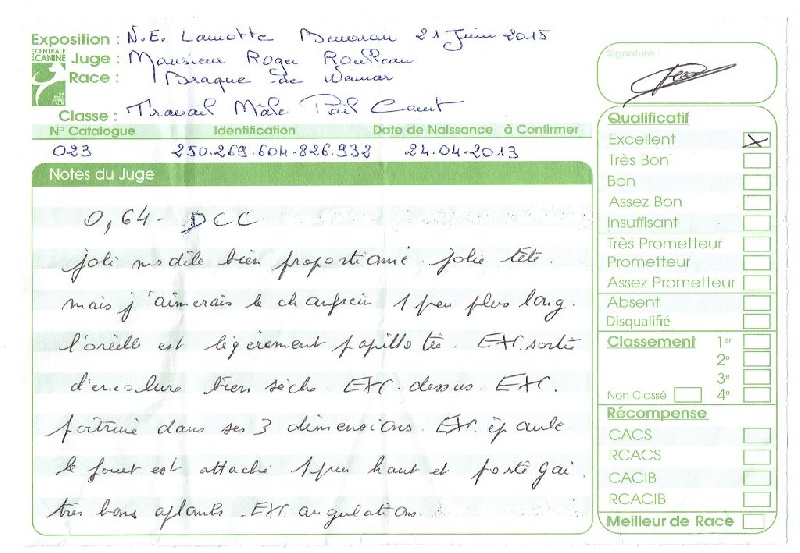 Exposition : N.E. Lamotte Beuvron 21 Juin 2015
CENTRALE CANINE
Juge : Monsieur Roger Rouleau
Race : Braque de Weimar
Classe : Travail Mâle Poil Court
N° Catalogue Identification Date de Naissance à Confirmer
023 250.269.604.826.932 24.04.2013
Notes du Juge
0,64 - DCC
joli modèle bien proportionné. jolie tête.
mais j'aimerais le chanfrein 1 peu plus long.
l'oreille est légèrement papillotée. EXC. sortie
d'encolure bien sèche. EXC. dessus. EXC.
poitrine dans ses 3 dimensions. EXC. épaule
le fouet est attaché 1 peu haut et porté gai.
très bons aplombs. EXC angulations.
Signature :
Qualificatif
Excellent
Très Bon
Bon
Assez Bon
Insuffisant
Très Prometteur
Prometteur
Assez Prometteur
Absent
Disqualifié
Classement 1er
2e
3e
Non Classé 4e
Récompense
CACS
RCACS
CACIB
RCACIB
Meilleur de Race